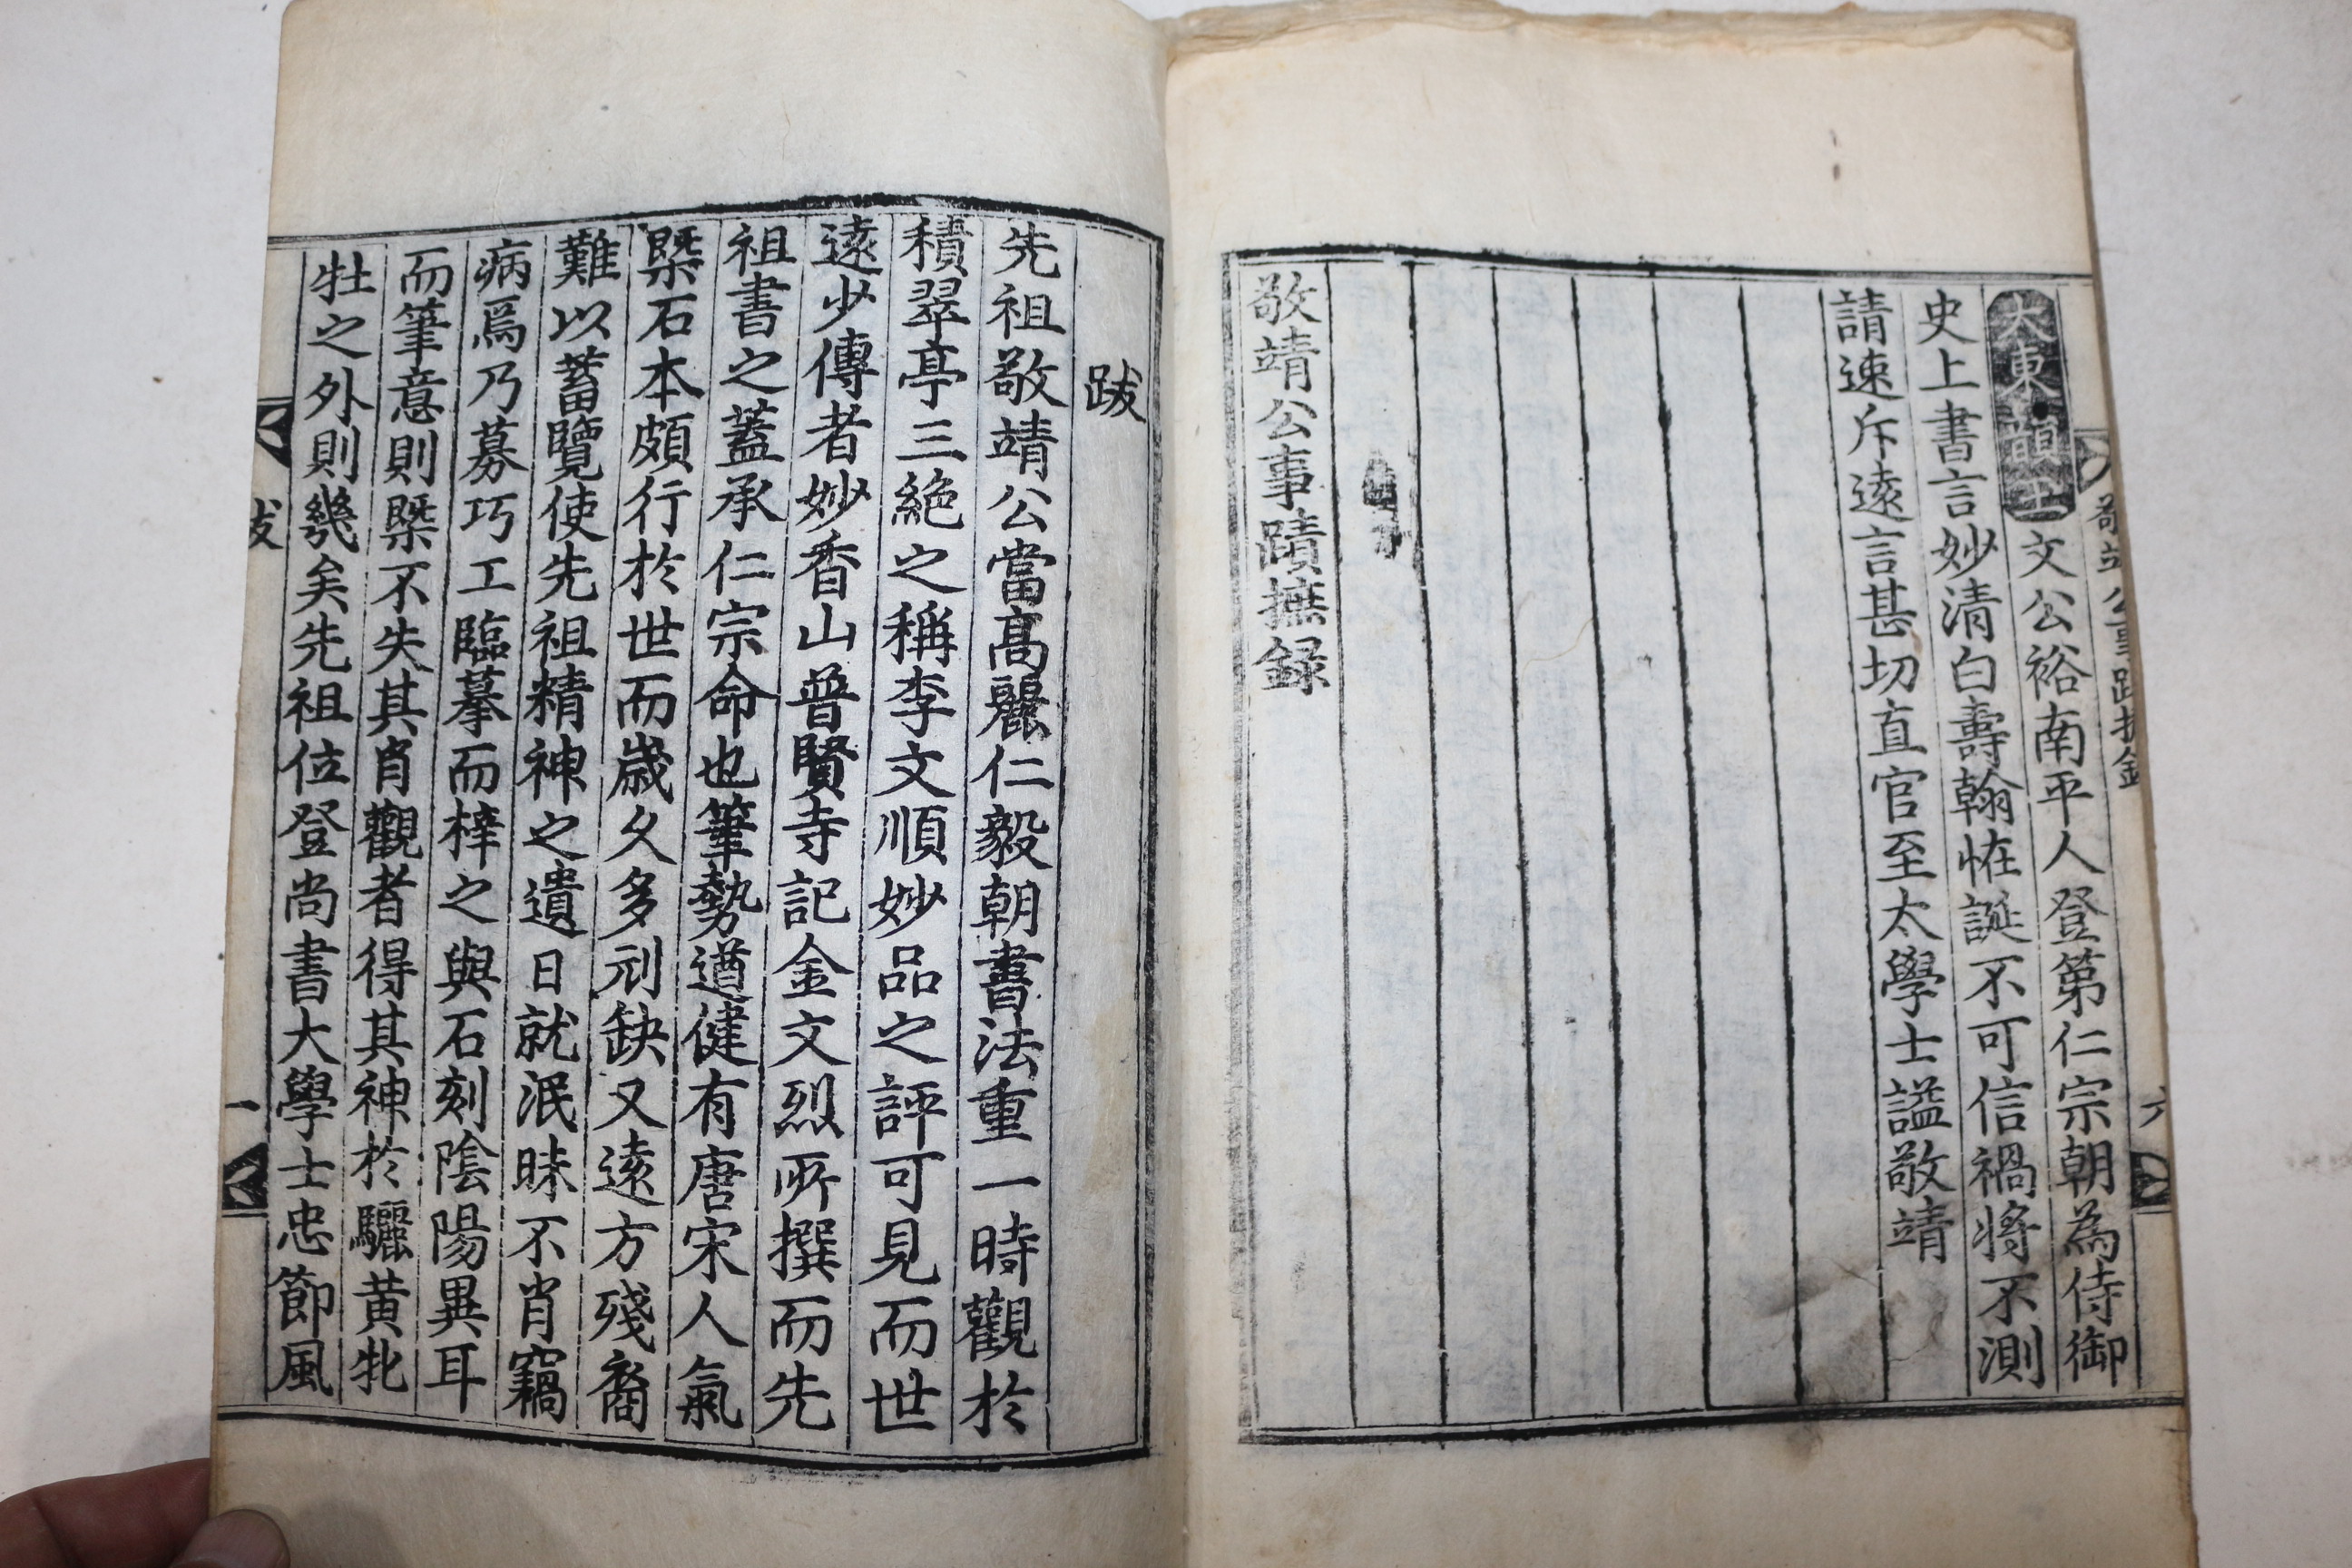 敬靖公事蹟摭錄
六
大東韻玉文公裕南平人登第仁宗朝為侍御
史上書言妙清白壽翰恠誕不可信禍將不測
請速斥遠言甚切直官至太學士諡敬靖
敬靖公事蹟摭録
跋
先祖敬靖公當高麗仁毅朝書法重一時觀於
積翠亭三絶之稱李文順妙品之評可見而世
遠少傳者妙香山普賢寺記金文烈所撰而先
祖書之蓋承仁宗命也筆勢遒健有唐宋人氣
槩石本頗行於世而歲久多刓缺又遠方殘裔
難以蓄覽使先祖精神之遺日就泯昧不肖竊
病焉乃募巧工臨摹而梓之與石刻陰陽異耳
而筆意則槩不失其肖觀者得其神於驪黃牝
牡之外則幾矣先祖位登尚書大學士忠節風
跋
一